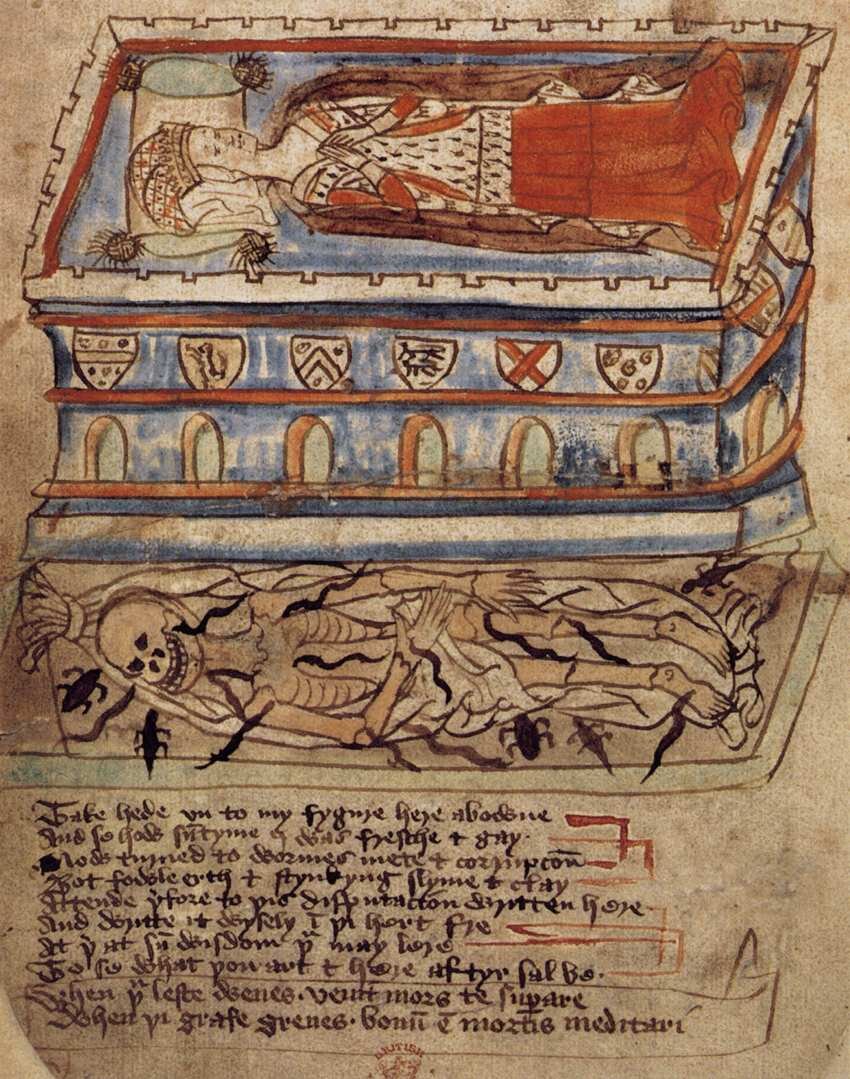 Take hede vn to my fygure here abowne
And se how sūtyme I was fresche & gay
Now turned to wormes mete & corrupcoū
Bot fowle erth & stynkyng slyme & clay
Attende þfore to þis disputacion written here
And writte it wysely ī þi hert fre
At þ at sū wisdom þu may lere
To se what þou art & here aftyr sal be.
When þu leste wenes. venit mors te supare
When þi grafe grenes. bonū ē mortis meditari
BRITISH